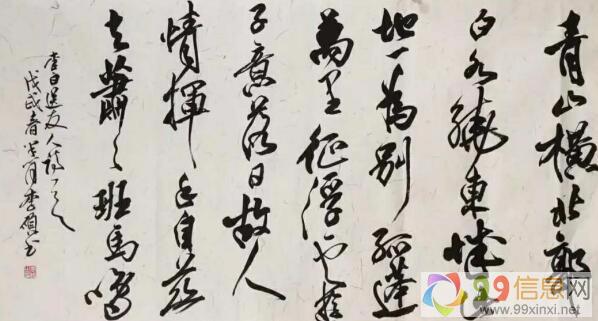 青山横北郭
白水繞東城此
地一為别孤蓬
萬里征浮云游
子意落日故人
情揮手自茲
去蕭々班馬鳴
李白送友人詩一首
戊戌春月李碩书
99信息网
www.99xinxi.net